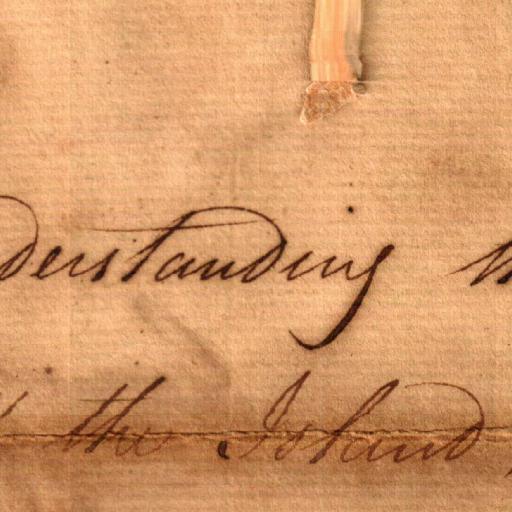 derstanding
the Island,